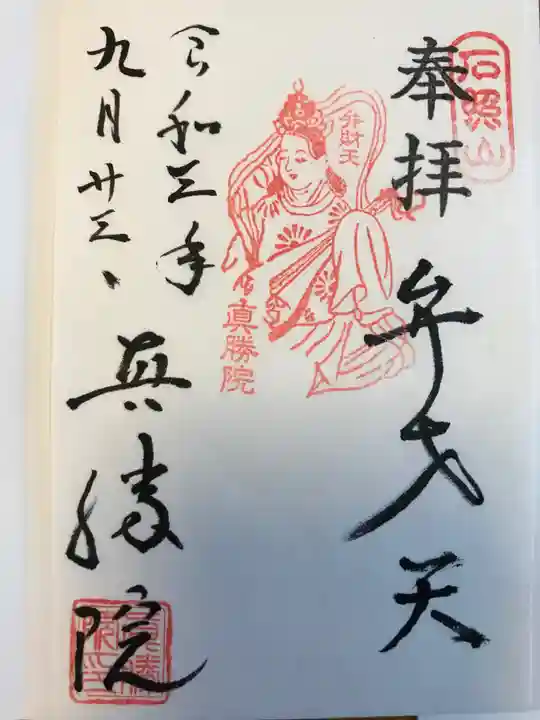 石照山
奉拝
弁才天
弁財天
真勝院
令和三年
九月廿三、
真勝院